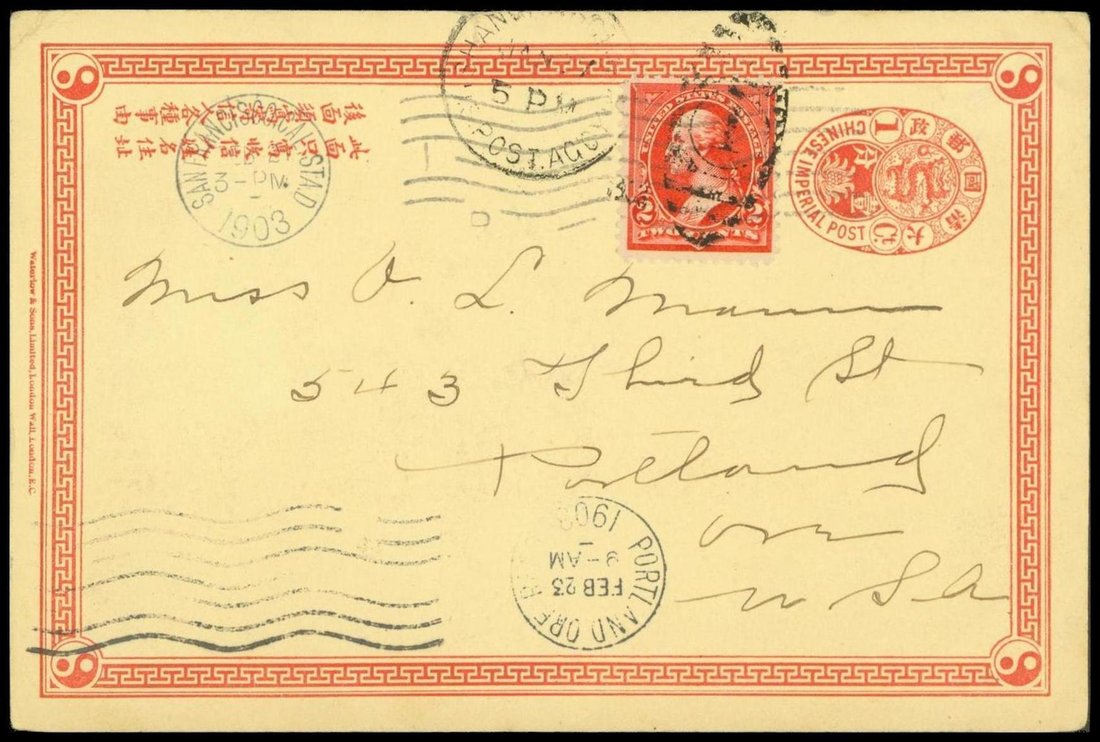 SHANGHAI
5 PM
POST. AGCY
SAN FRANCISCO, CAL. STA. D
3-PM
1903
UNITED STATES POSTAGE
2 TWO CENTS 2
大清國郵政
壹分
1 Ct.
CHINESE IMPERIAL POST
此面只寫收信人姓名住址
Miss O L Mann
543 Third St
Portland
Ore
U S A
PORTLAND ORE
FEB 23
9-AM
1903
Waterlow & Sons, Limited, London Wall, London, E.C.